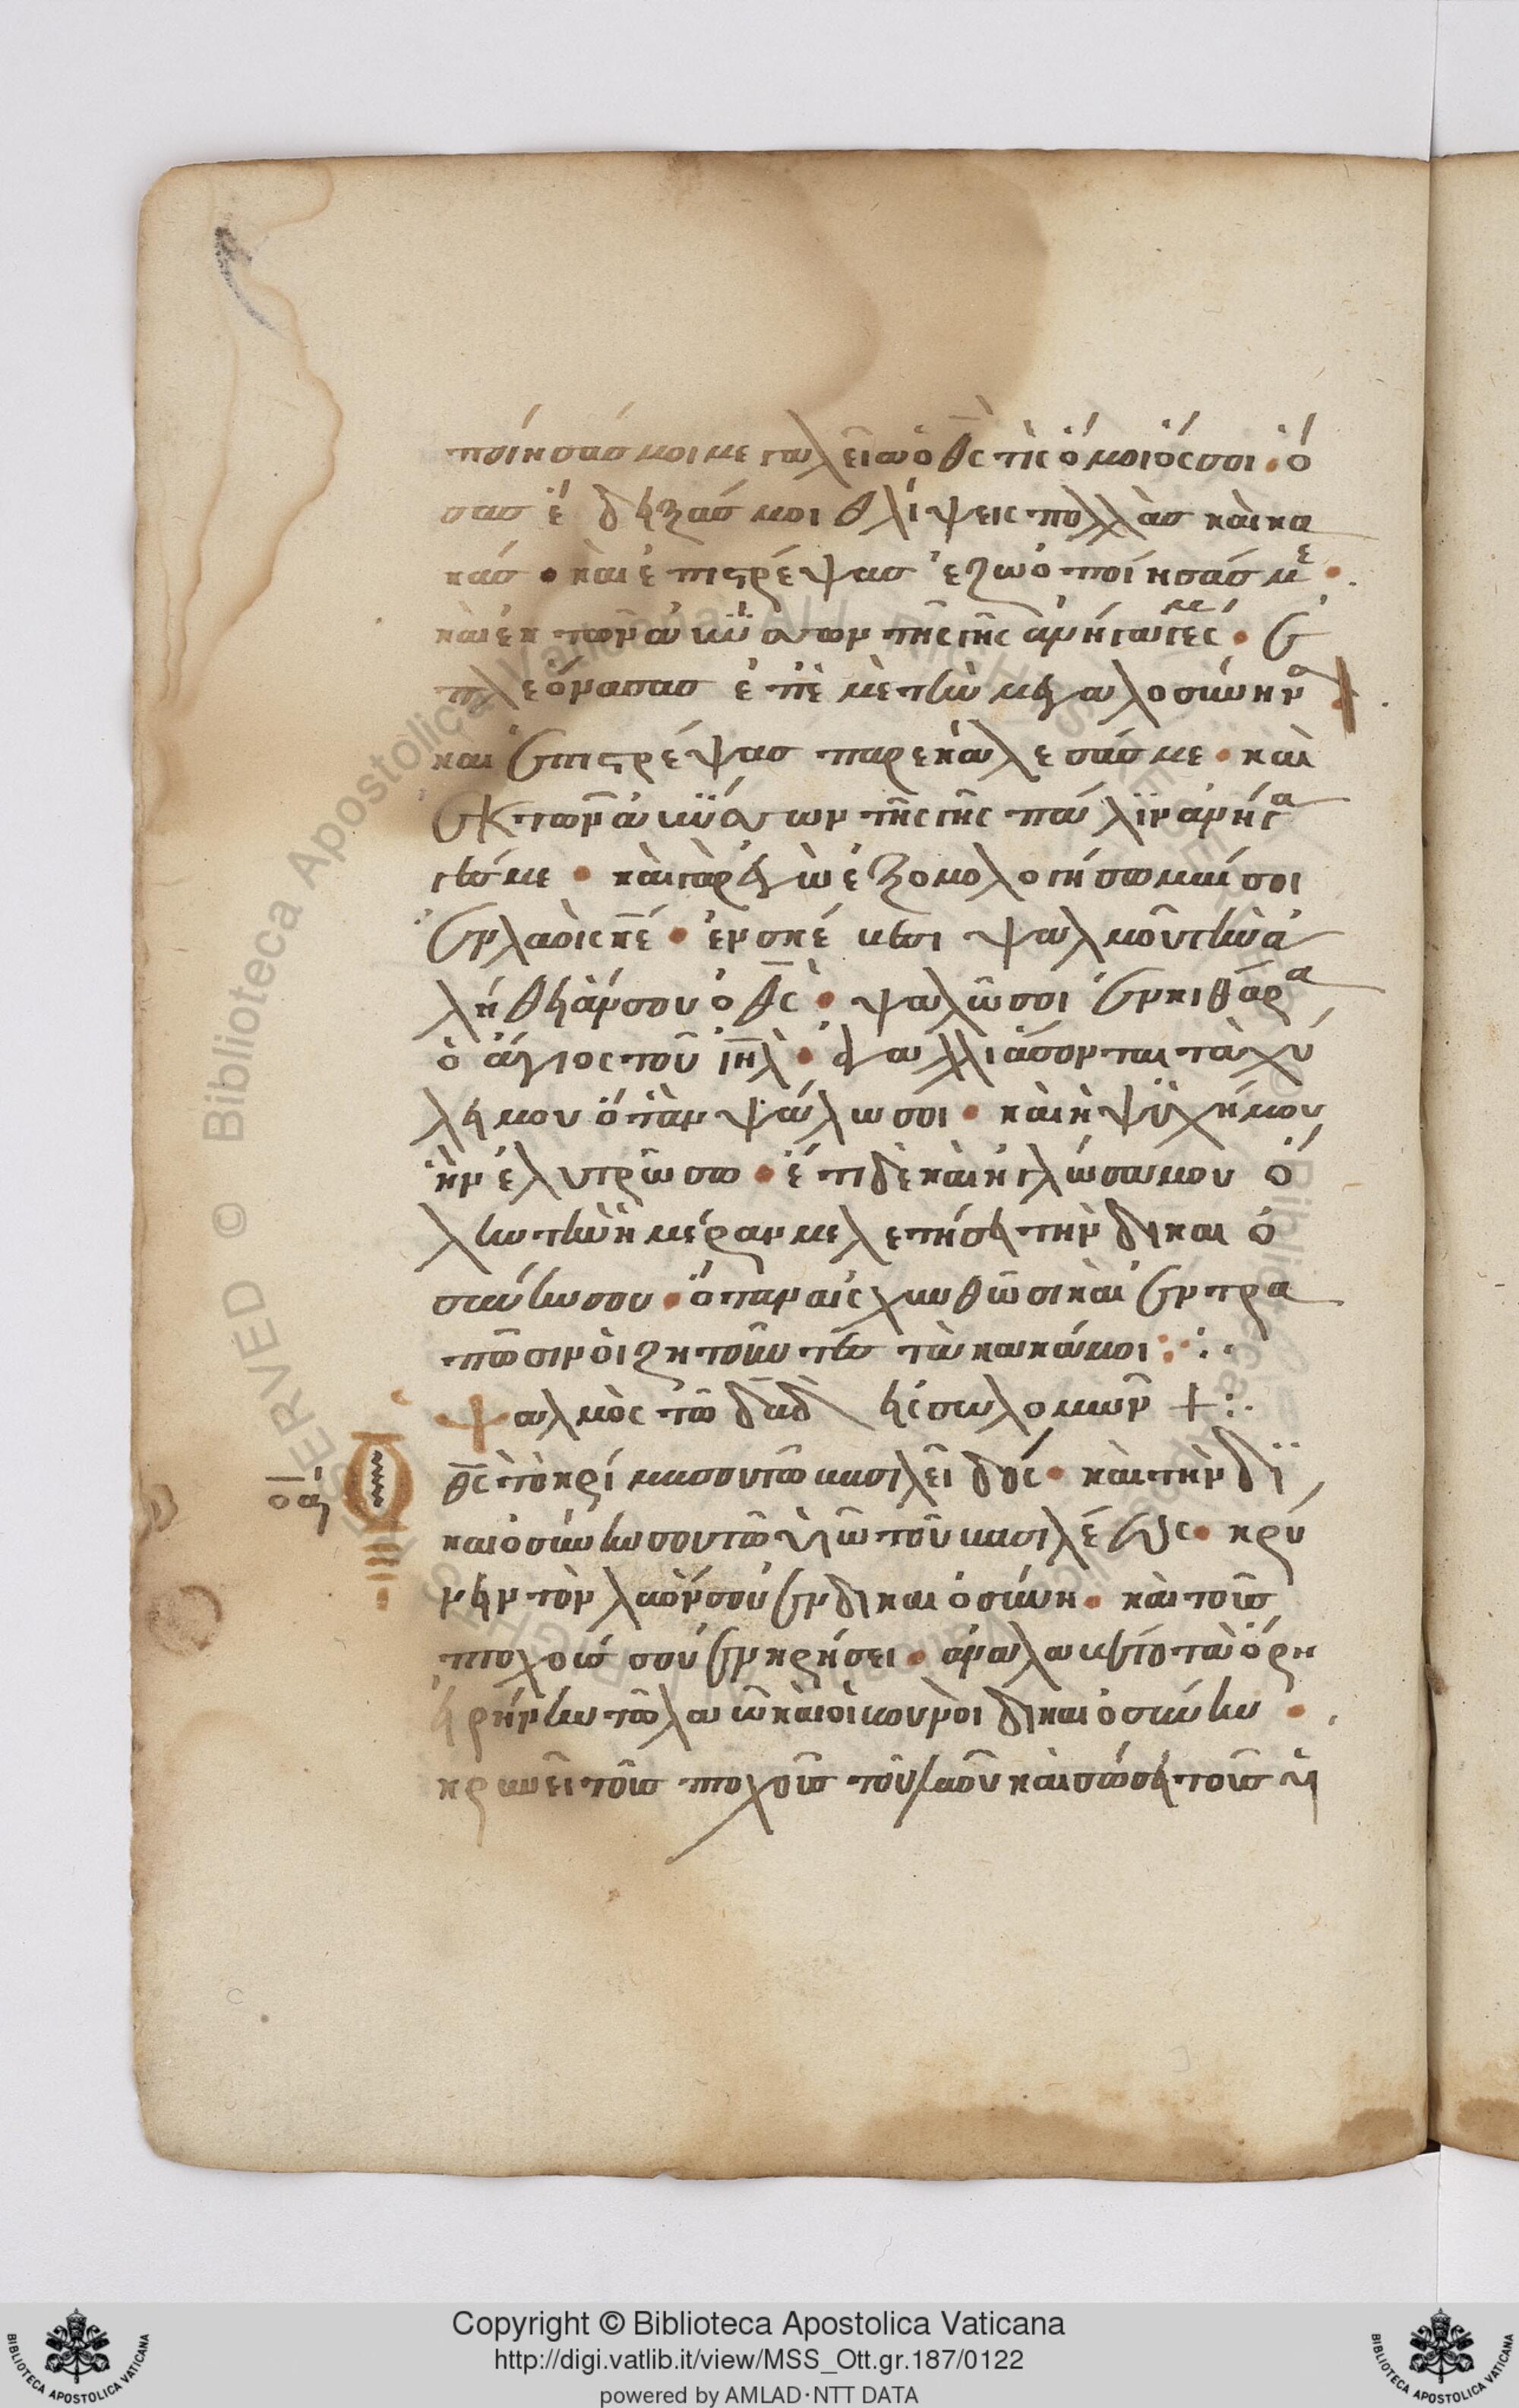 ποίησάσ μοι μεγαλεῖα ὁ θ̅ς̅ τίς ὅμοιός σοι · ὅ
σασ ἔδειξάσ μοι θλίψεις πολλὰσ καὶ κα
κάσ · καὶ ἐπιστρέψασ ἐζωοποίησάσ με ·
καὶ ἐκ τῶν ἀβύσσων τῆς γῆς ἀνήγαγές με · ἐ
πλεόνασασ ἐπ' ἐμὲ τὴν μεγαλοσύνην σ
καὶ ἐπιστρέψασ παρεκάλεσάσ με · καὶ
ἐκ τῶν ἀβύσσων τῆς γῆς πάλιν ἀνήγα
γέσ με · καὶ γὰρ ἐγὼ ἐξομολογήσωμαί σοι
ἐν λαοῖς κ̅ε̅ · ἐν σκέβεσι ψαλμοῦ τὴν ἀ
λήθειάν σου ὁ θ̅ς̅ · ψαλῶ σοι ἐν κιθάρα
ὁ ἅγιος τοῦ ι̅η̅λ̅ · ἀγαλλιάσονται τὰ χύ
λη μου ὅταν ψάλω σοι · καὶ ἡ ψυχή μου
ἣν ἐλυτρώσω · ἔτι δὲ καὶ ἡ γλώσα μου ὅ
λην τὴν ἡμέραν μελετήσει τὴν δικαιο
σύνην σου · ὅταν αἰσχυνθῶσι καὶ ἐντρα
πῶσιν οἱ ζητοῦντεσ τὰ κακά μοι :·
ψαλμὸς τῶ δα̅δ̅ εἰς σαλομών + :·
ο̅α̅ Ὁ θ̅ς̅ τὸ κρίμα σου τῶ βασιλεῖ δός · καὶ τὴν δι
καιοσύνην σου τῶ υἱῶ τοῦ βασιλέως · κρί
νειν τὸν λαόν σου ἐν δικαιοσύνη · καὶ τοὺσ
πτοχούσ σου ἐν κρήσει · ἀναλαβέτο τὰ ὄρη
εἰρήνην τῶ λαῶ καὶ οἱ βουνοὶ δικαιοσύνην ·
κρινεῖ τοὺσ πτοχοὺσ τοῦ λαοῦ καὶ σώσει τοὺσ υἱ
Copyright © Biblioteca Apostolica Vaticana
http://digi.vatlib.it/view/MSS_Ott.gr.187/0122
powered by AMLAD·NTT DATA